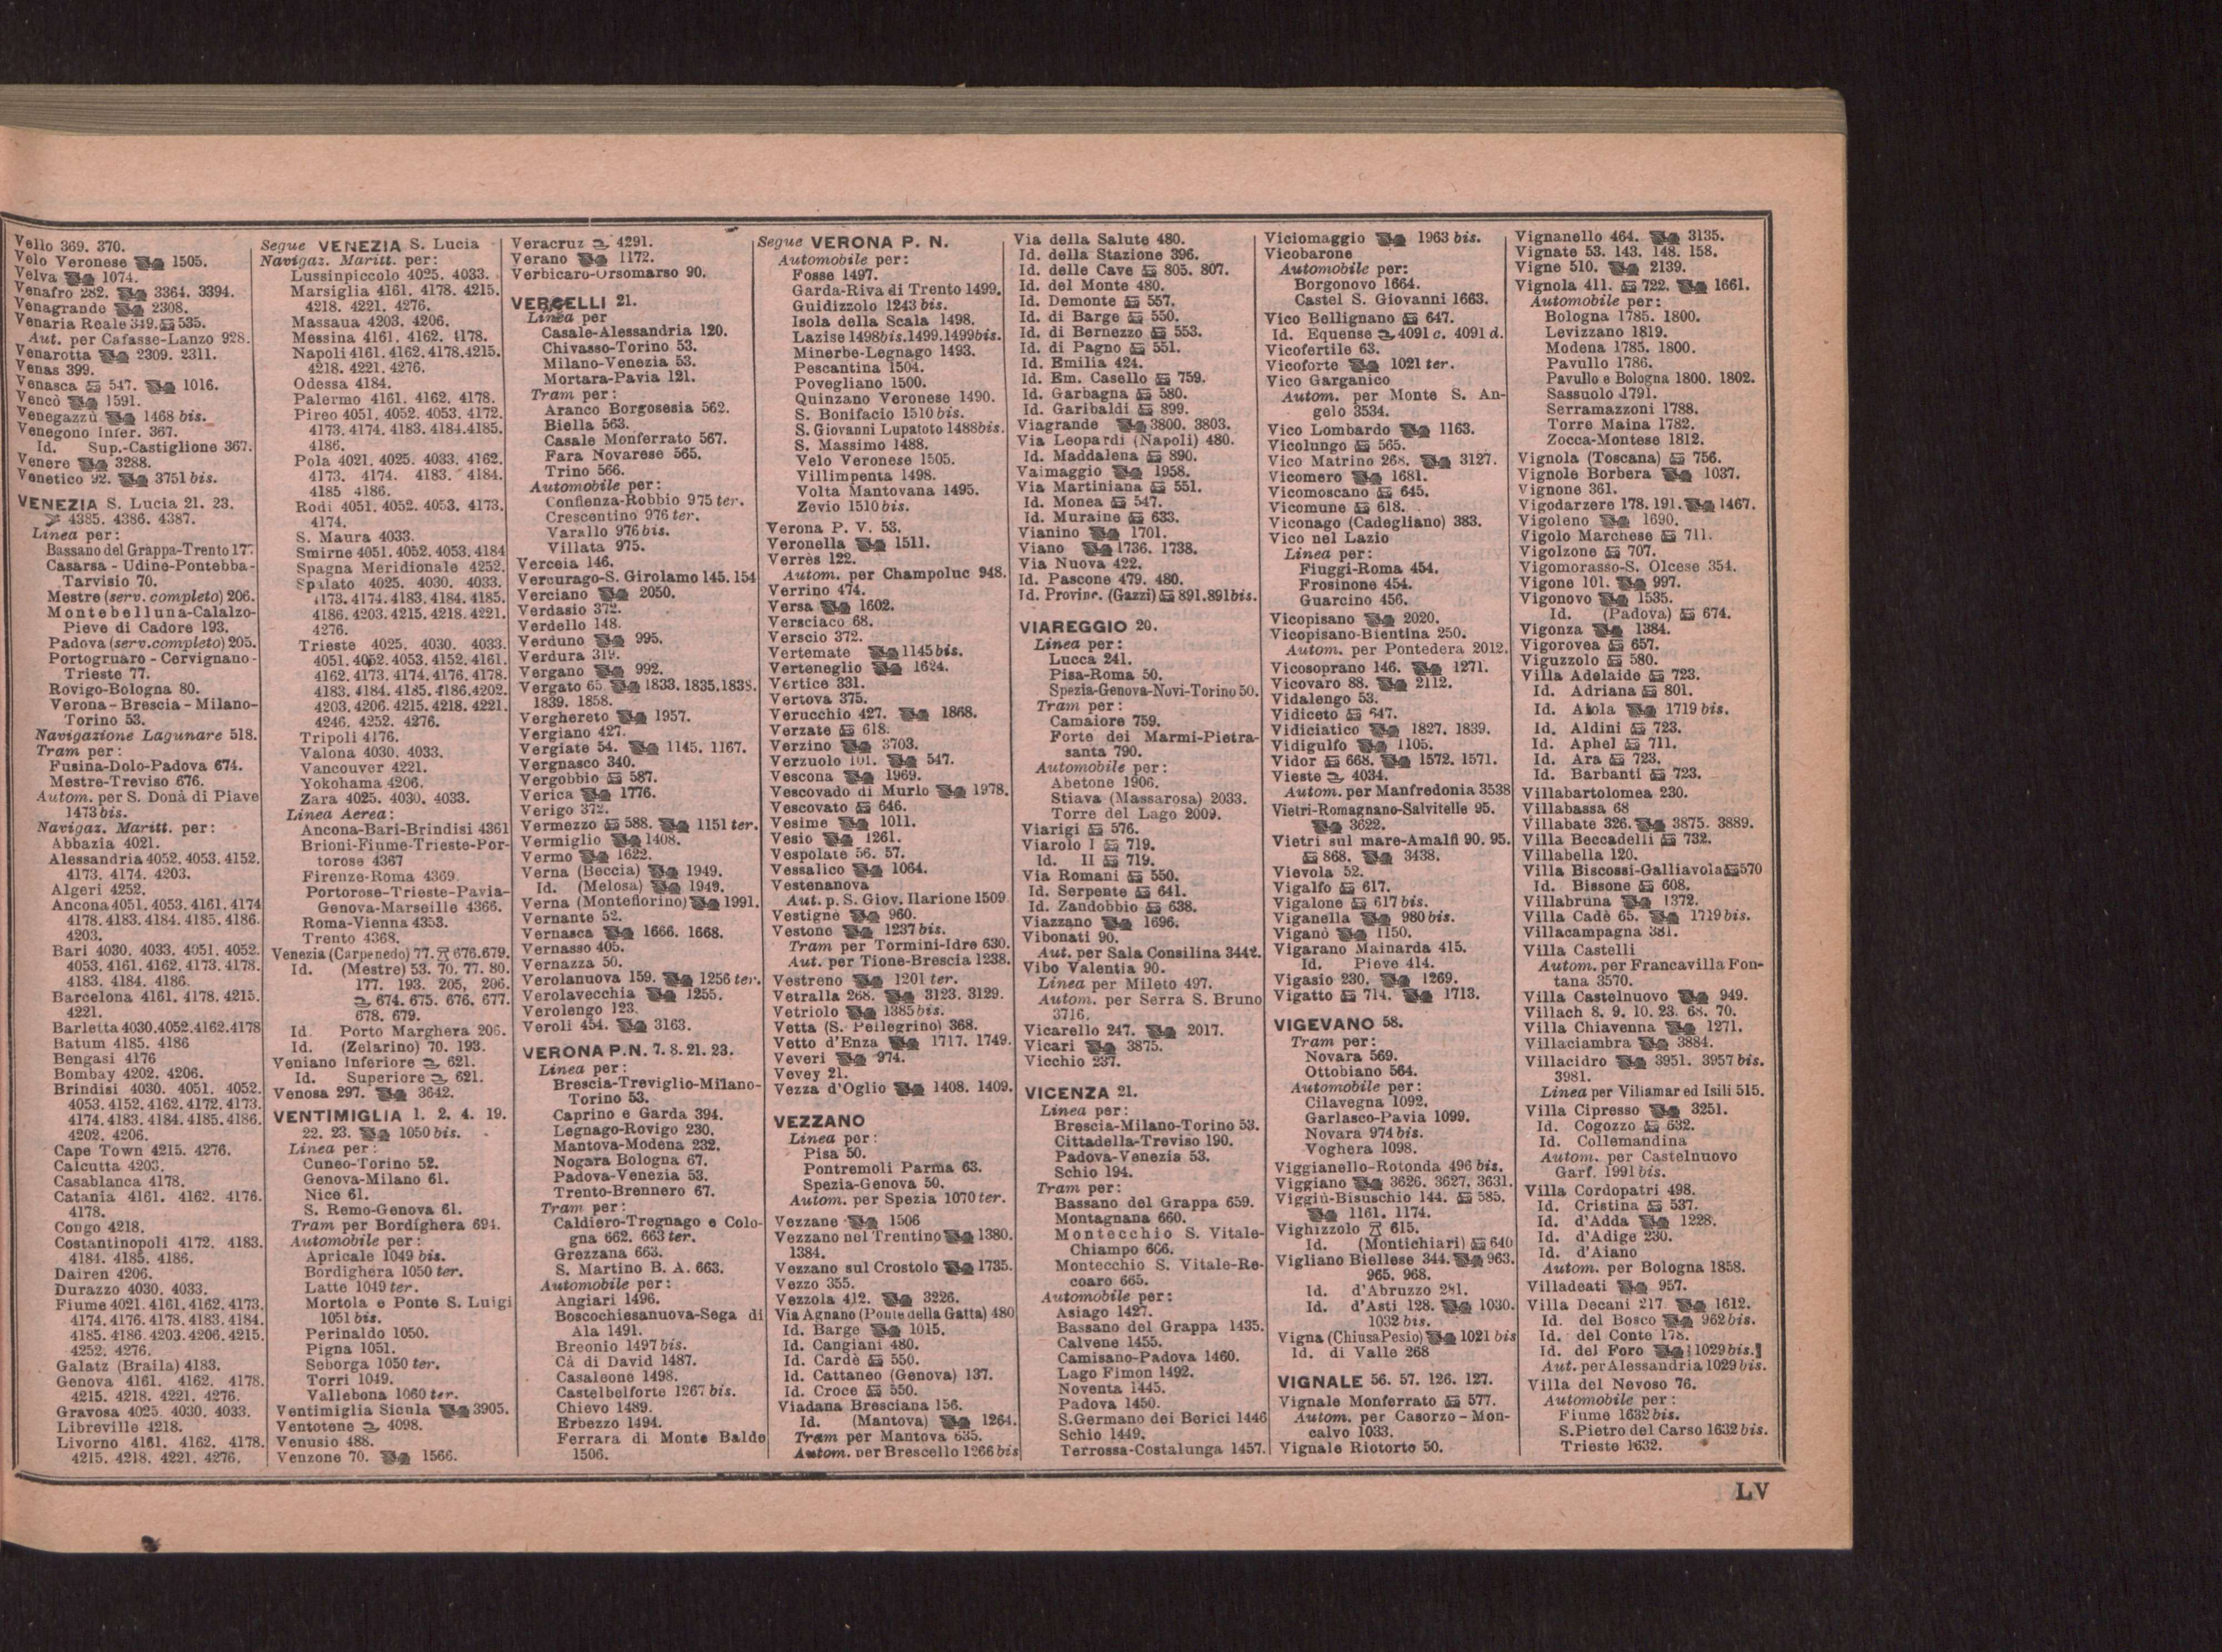 Vello 369. 370.
Velo Veronese 1505.
Velva 1074.
Venafro 282. 3364. 3394.
Venagrande 2308.
Venaria Reale 349. 535.
Aut. per Cafasse-Lanzo 928.
Venarotta 2309. 2311.
Venas 399.
Venasca 547. 1016.
Vencò 1591.
Venegazzù 1468 bis.
Venegono Infer. 367.
Id. Sup.-Castiglione 367.
Venere 3288.
Venetico 92. 3751 bis.
VENEZIA S. Lucia 21. 23.
4385. 4386. 4387.
Linea per:
Bassano del Grappa-Trento
Casarsa - Udine-Pontebba-
Tarvisio 70.
Mestre (serv. completo) 206.
Montebelluna-Calalzo-
Pieve di Cadore 193.
Padova (serv. completo) 205.
Portogruaro - Cervignano-
Trieste 77.
Rovigo-Bologna 80.
Verona - Brescia - Milano-
Torino 53.
Navigazione Lagunare 518.
Tram per:
Fusina-Dolo-Padova 674.
Mestre-Treviso 676.
Autom. per S. Donà di Piave
1473 bis.
Navigaz. Maritt. per:
Abbazia 4021.
Alessandria 4052. 4053. 4152.
4173. 4174. 4203.
Algeri 4252.
Ancona 4051. 4053. 4161. 4174
4178. 4183. 4184. 4185. 4186.
4203.
Bari 4030. 4033. 4051. 4052.
4053. 4161. 4162. 4173. 4178.
4183. 4184. 4186.
Barcelona 4161. 4178. 4215.
4221.
Barletta 4030. 4052. 4162. 4178
Batum 4185. 4186
Bengasi 4176
Bombay 4202. 4206.
Brindisi 4030. 4051. 4052.
4053. 4152. 4162. 4172. 4173.
4174. 4183. 4184. 4185. 4186.
4202. 4206.
Cape Town 4215. 4276.
Calcutta 4203.
Casablanca 4178.
Catania 4161. 4162. 4176.
4178.
Congo 4218.
Costantinopoli 4172. 4183.
4184. 4185. 4186.
Dairen 4206.
Durazzo 4030. 4033.
Fiume 4021. 4161. 4162. 4173.
4174. 4176. 4178. 4183. 4184.
4185. 4186. 4203. 4206. 4215.
4252. 4276.
Galatz (Braila) 4183.
Genova 4161. 4162. 4178.
4215. 4218. 4221. 4276.
Gravosa 4025. 4030. 4033.
Libreville 4218.
Livorno 4161. 4162. 4178.
4215. 4218. 4221. 4276.
Segue VENEZIA S. Lucia
Navigaz. Maritt. per:
Lussinpiccolo 4025. 4033.
Marsiglia 4161. 4178. 4215.
4218. 4221. 4276.
Massaua 4203. 4206.
Messina 4161. 4162. 4178.
Napoli 4161. 4162. 4178. 4215.
4218. 4221. 4276.
Odessa 4184.
Palermo 4161. 4162. 4178.
Pireo 4051. 4052. 4053. 4172.
4173. 4174. 4183. 4184. 4185.
4186.
Pola 4021. 4025. 4033. 4162.
4173. 4174. 4183. 4184.
4185 4186.
Rodi 4051. 4052. 4053. 4173.
4174.
S. Maura 4033.
Smirne 4051. 4052. 4053. 4184
Spagna Meridionale 4252.
Spalato 4025. 4030. 4033.
4173. 4174. 4183. 4184. 4185.
4186. 4203. 4215. 4218. 4221.
4276.
Trieste 4025. 4030. 4033.
4051. 4052. 4053. 4152. 4161.
4162. 4173. 4174. 4176. 4178.
4183. 4184. 4185. 4186. 4202.
4203. 4206. 4215. 4218. 4221.
4246. 4252. 4276.
Tripoli 4176.
Valona 4030. 4033.
Vancouver 4221.
Yokohama 4206.
Zara 4025. 4030. 4033.
Linea Aerea:
Ancona-Bari-Brindisi 4361
Brioni-Fiume-Trieste-Por-
torose 4367
Firenze-Roma 4369.
Portorose-Trieste-Pavia-
Genova-Marseille 4366.
Roma-Vienna 4353.
Trento 4368.
Venezia (Carpenedo) 77. 676. 679.
Id. (Mestre) 53. 70. 77. 80.
177. 193. 205, 206.
674. 675. 676. 677.
678. 679.
Id. Porto Marghera 206.
Id. (Zelarino) 70. 193.
Veniano Inferiore 621.
Id. Superiore 621.
Venosa 297. 3642.
VENTIMIGLIA 1. 2. 4. 19.
22. 23. 1050 bis.
Linea per:
Cuneo-Torino 52.
Genova-Milano 61.
Nice 61.
S. Remo-Genova 61.
Tram per Bordighera 694.
Automobile per:
Apricale 1049 bis.
Bordighera 1050 ter.
Latte 1049 ter.
Mortola e Ponte S. Luigi
1051 bis.
Perinaldo 1050.
Pigna 1051.
Seborga 1050 ter.
Torri 1049.
Vallebona 1060 ter.
Ventimiglia Sicula 3905.
Ventotene 4098.
Venusio 488.
Venzone 70. 1566.
Veracruz 4291.
Verano 1172.
Verbicaro-Orsomarso 90.
VERCELLI 21.
Linea per
Casale-Alessandria 120.
Chivasso-Torino 53.
Milano-Venezia 53.
Mortara-Pavia 121.
Tram per:
Aranco Borgosesia 562.
Biella 563.
Casale Monferrato 567.
Fara Novarese 565.
Trino 566.
Automobile per:
Confienza-Robbio 975 ter.
Crescentino 976 ter.
Varallo 976 bis.
Villata 975.
Verceia 146.
Vercurago-S. Girolamo 145. 154
Verciano 2050.
Verdasio 372.
Verdello 148.
Verduno 995.
Verdura 319.
Vergano 992.
Vergato 65. 1833. 1835. 1838.
1839. 1858.
Verghereto 1957.
Vergiano 427.
Vergiate 54. 1145. 1167.
Vergnasco 340.
Vergobbio 587.
Verica 1776.
Verigo 372.
Vermezzo 588. 1151 ter.
Vermiglio 1408.
Vermo 1622.
Verna (Beccia) 1949.
Id. (Melosa) 1949.
Verna (Montefiorino) 1991.
Vernante 52.
Vernasca 1666. 1668.
Vernasso 405.
Vernazza 50.
Verolanuova 159. 1256 ter.
Verolavecchia 1255.
Verolengo 123.
Veroli 454. 3163.
VERONA P.N. 7. 8. 21. 23.
Linea per:
Brescia-Treviglio-Milano-
Torino 53.
Caprino e Garda 394.
Legnago-Rovigo 230.
Mantova-Modena 232.
Nogara Bologna 67.
Padova-Venezia 53.
Trento-Brennero 67.
Tram per:
Caldiero-Tregnago e Colo-
gna 662. 663 ter.
Grezzana 663.
S. Martino B. A. 663.
Automobile per:
Angiari 1496.
Boscochiesanuova-Sega di
Ala 1491.
Breonio 1497 bis.
Cà di David 1487.
Casaleone 1498.
Castelbelforte 1267 bis.
Chievo 1489.
Erbezzo 1494.
Ferrara di Monte Baldo
1506.
Segue VERONA P. N.
Automobile per:
Fosse 1497.
Garda-Riva di Trento 1499.
Guidizzolo 1243 bis.
Isola della Scala 1498.
Lazise 1498 bis. 1499. 1499 bis.
Minerbe-Legnago 1493.
Pescantina 1504.
Povegliano 1500.
Quinzano Veronese 1490.
S. Bonifacio 1510 bis.
S. Giovanni Lupatoto 1488 bis.
S. Massimo 1488.
Velo Veronese 1505.
Villimpenta 1498.
Volta Mantovana 1495.
Zevio 1510 bis.
Verona P. V. 53.
Veronella 1511.
Verrès 122.
Autom. per Champoluc 948.
Verrino 474.
Versa 1602.
Versciaco 68.
Verscio 372.
Vertemate 1145 bis.
Verteneglio 1624.
Vertice 331.
Vertova 375.
Verucchio 427. 1868.
Verzate 618.
Verzino 3703.
Verzuolo 101. 547.
Vescona 1969.
Vescovado di Murlo 1978.
Vescovato 646.
Vesime 1011.
Vesio 1261.
Vespolate 56. 57.
Vessalico 1064.
Vestenanova
Aut. p. S. Giov. Ilarione 1509
Vestignè 960.
Vestone 1237 bis.
Tram per Tormini-Idro 630.
Aut. per Tione-Brescia 1238.
Vestreno 1201 ter.
Vetralla 268. 3123. 3129.
Vetriolo 1385 bis.
Vetta (S. Pellegrino) 368.
Vetto d'Enza 1717. 1749.
Veveri 974.
Vevey 21.
Vezza d'Oglio 1408. 1409.
VEZZANO
Linea per:
Pisa 50.
Pontremoli Parma 63.
Spezia-Genova 50.
Autom. per Spezia 1070 ter.
Vezzane 1506
Vezzano nel Trentino 1380.
1384.
Vezzano sul Crostolo 1735.
Vezzo 355.
Vezzola 412. 3226.
Via Agnano (Ponte della Gatta) 480
Id. Barge 1015.
Id. Cangiani 480.
Id. Cardè 550.
Id. Cattaneo (Genova) 137.
Id. Croce 550.
Viadana Bresciana 156.
Id. (Mantova) 1264.
Tram per Mantova 635.
Autom. per Brescello 1266 bis
Via della Salute 480.
Id. della Stazione 396.
Id. delle Cave 805. 807.
Id. del Monte 480.
Id. Demonte 557.
Id. di Barge 550.
Id. di Bernezzo 553.
Id. di Pagno 551.
Id. Emilia 424.
Id. Em. Casello 759.
Id. Garbagna 580.
Id. Garibaldi 899.
Viagrande 3800. 3803.
Via Leopardi (Napoli) 480.
Id. Maddalena 890.
Vaimaggio 1958.
Via Martiniana 551.
Id. Monea 547.
Id. Muraine 633.
Vianino 1701.
Viano 1736. 1738.
Via Nuova 422.
Id. Pascone 479. 480.
Id. Provinc. (Gazzi) 891. 891 bis.
VIAREGGIO 20.
Linea per:
Lucca 241.
Pisa-Roma 50.
Spezia-Genova-Novi-Torino 50.
Tram per:
Camaiore 759.
Forte dei Marmi-Pietra-
santa 790.
Automobile per:
Abetone 1906.
Stiava (Massarosa) 2033.
Torre del Lago 2009.
Viarigi 576.
Viarolo I 719.
Id. II 719.
Via Romani 550.
Id. Serpente 641.
Id. Zandobbio 638.
Viazzano 1696.
Vibonati 90.
Aut. per Sala Consilina 3442.
Vibo Valentia 90.
Linea per Mileto 497.
Autom. per Serra S. Bruno
3716.
Vicarello 247. 2017.
Vicari 3875.
Vicchio 237.
VICENZA 21.
Linea per:
Brescia-Milano-Torino 53.
Cittadella-Treviso 190.
Padova-Venezia 53.
Schio 194.
Tram per:
Bassano del Grappa 659.
Montagnana 660.
Montecchio S. Vitale-
Chiampo 666.
Montecchio S. Vitale-Re-
coaro 665.
Automobile per:
Asiago 1427.
Bassano del Grappa 1435.
Calvene 1455.
Camisano-Padova 1460.
Lago Fimon 1492.
Noventa 1445.
Padova 1450.
S. Germano dei Berici 1446
Schio 1449.
Terrossa-Costalunga 1457.
Viciomaggio 1963 bis.
Vicobarone
Automobile per:
Borgonovo 1664.
Castel S. Giovanni 1663.
Vico Bellignano 647.
Id. Equense 4091 c. 4091 d.
Vicofertile 63.
Vicoforte 1021 ter.
Vico Garganico
Autom. per Monte S. An-
gelo 3534.
Vico Lombardo 1163.
Vicolungo 565.
Vico Matrino 268. 3127.
Vicomero 1681.
Vicomoscano 645.
Vicomune 618.
Viconago (Cadegliano) 383.
Vico nel Lazio
Linea per:
Fiuggi-Roma 454.
Frosinone 454.
Guarcino 456.
Vicopisano 2020.
Vicopisano-Bientina 250.
Autom. per Pontedera 2012.
Vicosoprano 146. 1271.
Vicovaro 88. 2112.
Vidalengo 53.
Vidiceto 647.
Vidiciatico 1827. 1839.
Vidigulfo 1105.
Vidor 668. 1572. 1571.
Vieste 4034.
Autom. per Manfredonia 3538
Vietri-Romagnano-Salvitelle 95.
3622.
Vietri sul mare-Amalfi 90. 95.
868. 3438.
Vievola 52.
Vigalfo 617.
Vigalone 617 bis.
Viganella 980 bis.
Viganò 1150.
Vigarano Mainarda 415.
Id. Pieve 414.
Vigasio 230. 1269.
Vigatto 714. 1713.
VIGEVANO 58.
Tram per:
Novara 569.
Ottobiano 564.
Automobile per:
Cilavegna 1092.
Garlasco-Pavia 1099.
Novara 974 bis.
Voghera 1098.
Viggianello-Rotonda 496 bis.
Viggiano 3626. 3627. 3631.
Viggiù-Bisuschio 144. 585.
1161. 1174.
Vighizzolo 615.
Id. (Montichiari) 640
Vigliano Biellese 344. 963.
965. 968.
Id. d'Abruzzo 281.
Id. d'Asti 128. 1030.
1032 bis.
Vigna (Chiusa Pesio) 1021 bis
Id. di Valle 268
VIGNALE 56. 57. 126. 127.
Vignale Monferrato 577.
Autom. per Casorzo - Mon-
calvo 1033.
Vignale Riotorto 50.
Vignanello 464. 3135.
Vignate 53. 143. 148. 158.
Vigne 510. 2139.
Vignola 411. 722. 1661.
Automobile per:
Bologna 1785. 1800.
Levizzano 1819.
Modena 1785. 1800.
Pavullo 1786.
Pavullo e Bologna 1800. 1802.
Sassuolo 1791.
Serramazzoni 1788.
Torre Maina 1782.
Zocca-Montese 1812.
Vignola (Toscana) 756.
Vignole Borbera 1037.
Vignone 361.
Vigodarzere 178. 191. 1467.
Vigoleno 1690.
Vigolo Marchese 711.
Vigolzone 707.
Vigomorasso-S. Olcese 354.
Vigone 101. 997.
Vigonovo 1535.
Id. (Padova) 674.
Vigonza 1384.
Vigorovea 657.
Viguzzolo 580.
Villa Adelaide 723.
Id. Adriana 801.
Id. Aiola 1719 bis.
Id. Aldini 723.
Id. Aphel 711.
Id. Ara 723.
Id. Barbanti 723.
Villabartolomea 230.
Villabassa 68
Villabate 326. 3875. 3889.
Villa Beccadelli 732.
Villabella 120.
Villa Biscossi-Galliavola 570
Id. Bissone 608.
Villabruna 1372.
Villa Cadè 65. 1719 bis.
Villacampagna 381.
Villa Castelli
Autom. per Francavilla Fon-
tana 3570.
Villa Castelnuovo 949.
Villach 8. 9. 10. 23. 68. 70.
Villa Chiavenna 1271.
Villaciambra 3884.
Villacidro 3951. 3957 bis.
3981.
Linea per Villamar ed Isili 515.
Villa Cipresso 3251.
Id. Cogozzo 632.
Id. Collemandina
Autom. per Castelnuovo
Garf. 1991 bis.
Villa Cordopatri 498.
Id. Cristina 537.
Id. d'Adda 1228.
Id. d'Adige 230.
Id. d'Aiano
Autom. per Bologna 1858.
Villadeati 957.
Villa Decani 217 1612.
Id. del Bosco 962 bis.
Id. del Conte 178.
Id. del Foro 1029 bis.
Aut. per Alessandria 1029 bis.
Villa del Nevoso 76.
Automobile per:
Fiume 1632 bis.
S. Pietro del Carso 1632 bis.
Trieste 1632.
LV